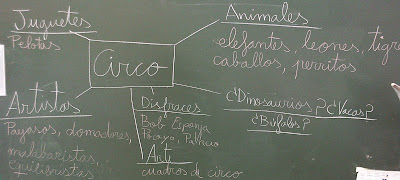 Juguetes
Pelotas
Circo
Animales
elefantes, leones, tigre
caballos, perritos
Artistas
Payasos, domadores,
malabaristas,
equilibristas
Disfraces
Bob Esponja
Pocoyo, Patricio
Arte
cuadros de circo
¿Dinosaurios? ¿Vacas?
¿Búfalos?